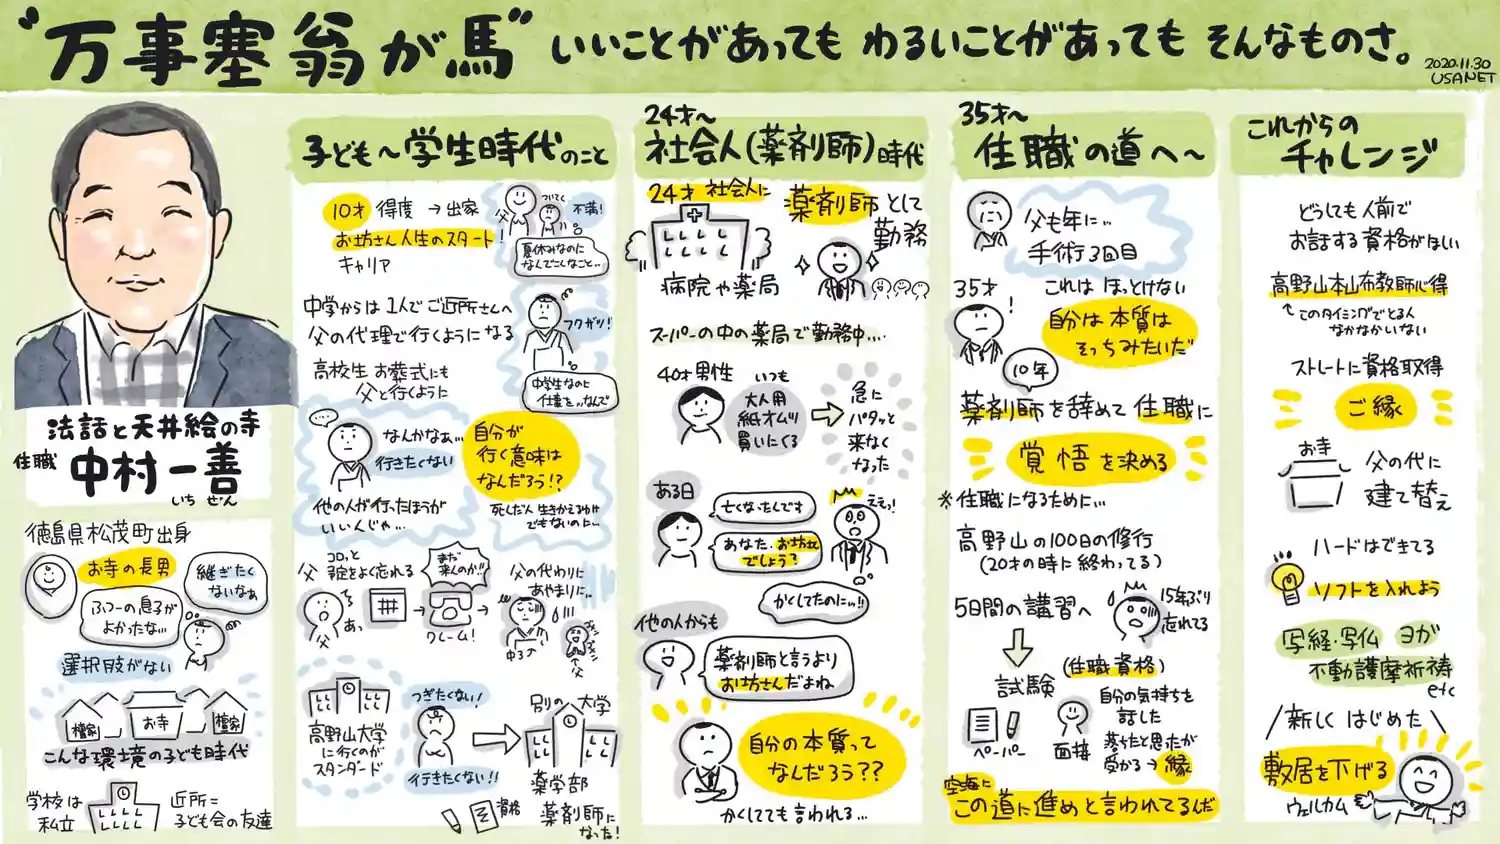 "万事塞翁が馬" いいことがあっても わるいことがあっても そんなものさ。
2020.11.30
USANET
法話と天井絵の寺
住職 中村一善
いち ぜん
徳島県松茂町出身
お寺の長男
継ぎたく
ないなぁ
ふつーの息子が
よかったな…
選択肢がない
檀家
お寺
檀家
こんな環境の子ども時代
学校は
私立
近所に
子ども会の友達
子ども〜学生時代のこと
10才 得度 → 出家
お坊さん人生のスタート!
キャリア
父
ついてく
不満!
夏休みなのに
なんでこんなこと…
中学からは1人でご近所さんへ
父の代理で行くようになる
フクザツ!
高校生 お葬式にも
父と行くように
中学生なのに
仕事を…なんで
なんかなぁ…
行きたくない
自分が
行く意味は
なんだろう!?
他の人が行ったほうが
いいんじゃ…
死んだ人 生きかえるわけ
でもないのに…
父
コロッと
予定をよく忘れる
あっ
父
まだ
来んのか!!
クレーム!
父の代わりに
あやまりに…
父
高野山大学
に行くのが
スタンダード
つぎたくない!
行きたくない!!
別の大学
薬学部
資格
薬剤師に
なった!
24才〜
社会人(薬剤師)時代
24才 社会人に
病院や薬局
薬剤師として
勤務
スーパーの中の薬局で勤務中…
40才男性
いつも
大人用
紙オムツ
買いにくる
急に
パタッと
来なく
なった
ある日
亡くなったんです
あなた、お坊さん
でしょう?
ええっ!
かくしてたのに…!!
他の人からも
薬剤師と言うより
お坊さんだよね
自分の本質って
なんだろう??
かくしてても言われる…
35才〜
住職の道へ〜
父も年に…
手術3回目
35才
!
これは ほっとけない
自分は本質は
そっちみたいだ
10年
薬剤師を辞めて 住職に
覚悟を決める
※住職になるために…
高野山の100日の修行
(20才の時に終わってる)
5日間の講習へ
15年ぶり
忘れてる
試験
(住職資格)
ペーパー
面接
自分の気持ちを
話した
落ちたと思ったが
受かる→縁
空海に
この道に進めと言われてるんだ
これからの
チャレンジ
どうしても人前で
お話する資格がほしい
高野山本山布教師心得
このタイミングでとる人
なかなかいない
ストレートに資格取得
ご縁
お寺
父の代に
建て替え
ハードはできてる
ソフトを入れよう
写経・写仏 ヨガ
不動護摩祈祷
etc
新しくはじめた
敷居を下げる
ウェルカム